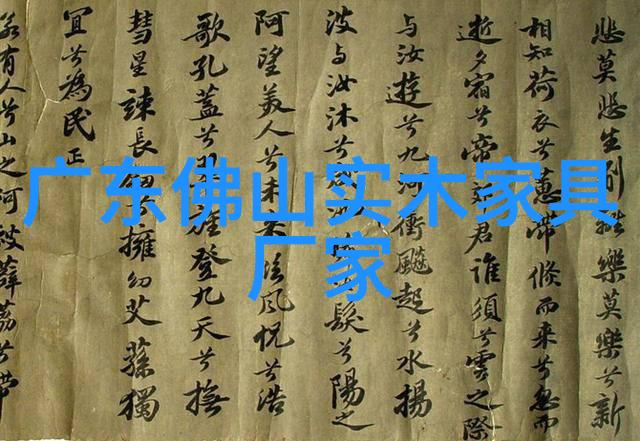 广东佛山实木家具
厂家
悲莫悲生別離樂莫樂兮新
相知荷衣兮蕙帶倏而來兮忽而
逝夕宿兮帝郊君誰須兮雲之際
与汝遊兮九河衝飈起兮水揚
波与汝沐兮咸池髮兮陽之
阿望美人兮未臨風怳兮浩
歌孔蓋兮旌登九天兮撫
彗星竦長兮擁幼艾蓀獨
宜兮為民正
若有人兮山之阿被薜荔兮帶